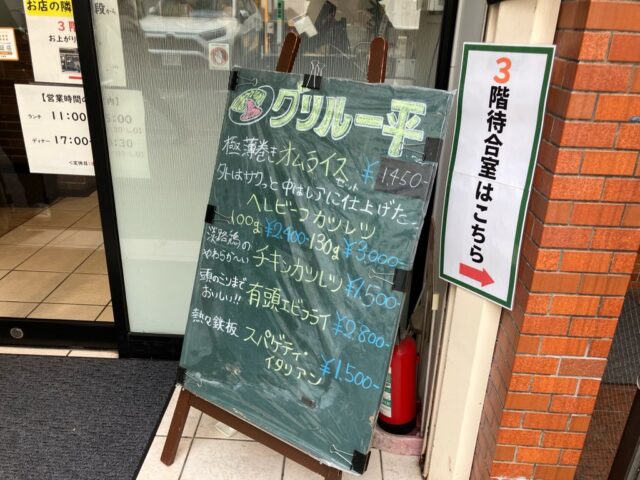 お店の隣
3階
お上がり
段から
【営業時間の
内】
ランチ 11:00
ディナー 17:00
グリル一平
極薄巻きオムライスセット ¥1,450-
外はサクっと中はレアに仕上げた
ヘレビーフカツレツ
100g ¥2,400- 130g ¥3,000-
淡路鶏の
やわらか〜い チキンカツレツ ¥1,500-
頭のミソまで
おいしい!! 有頭エビフライ ¥2,800-
熱々鉄板 スパゲティ・
イタリアン ¥1,500-
3階待合室はこちら